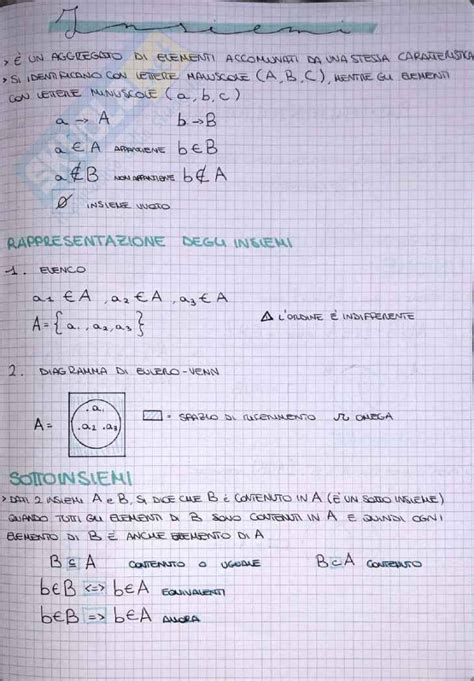 Insiemi
> È UN AGGREGATO DI ELEMENTI ACCOMUNATI DA UNA STESSA CARATTERISTICA
> SI IDENTIFICANO CON LETTERE MAIUSCOLE (A, B, C), MENTRE GLI ELEMENTI
CON LETTERE MINUSCOLE (a, b, c)
a → A b → B
a ∈ A APPARTIENE b ∈ B
a ∉ B NON APPARTIENE b ∉ A
∅ INSIEME VUOTO
RAPPRESENTAZIONE DEGLI INSIEMI
1. ELENCO
a1 ∈ A , a2 ∈ A , a3 ∈ A
A = {a1, a2, a3} ⚠ L'ORDINE È INDIFFERENTE
2. DIAGRAMMA DI EULERO-VENN
.a1
A = .a2 .a3 ▭ = SPAZIO DI RIFERIMENTO Ω OMEGA
SOTTOINSIEMI
> DATI 2 INSIEMI A e B, SI DICE CHE B È CONTENUTO IN A (È UN SOTTO INSIEME)
QUANDO TUTTI GLI ELEMENTI DI B SONO CONTENUTI IN A E QUINDI OGNI
ELEMENTO DI B È ANCHE ELEMENTO DI A
B ⊆ A CONTENUTO O UGUALE B ⊂ A CONTENUTO
b ∈ B <=> b ∈ A EQUIVALENTI
b ∈ B => b ∈ A ALLORA